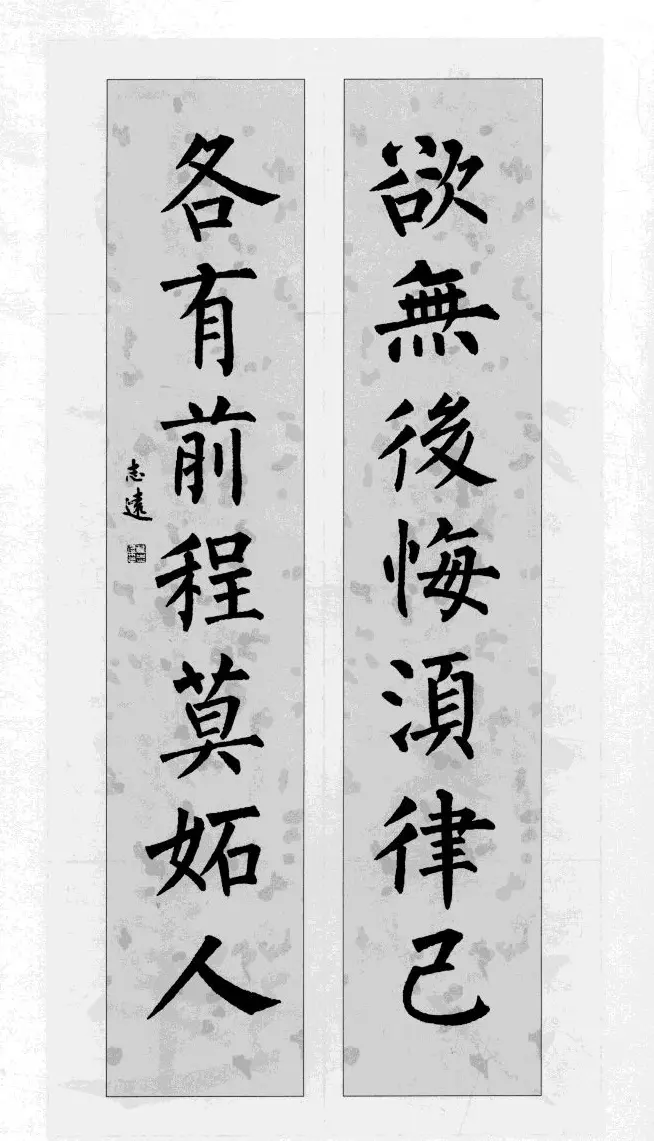 欲無後悔湏律己
各有前程莫妬人
志遠